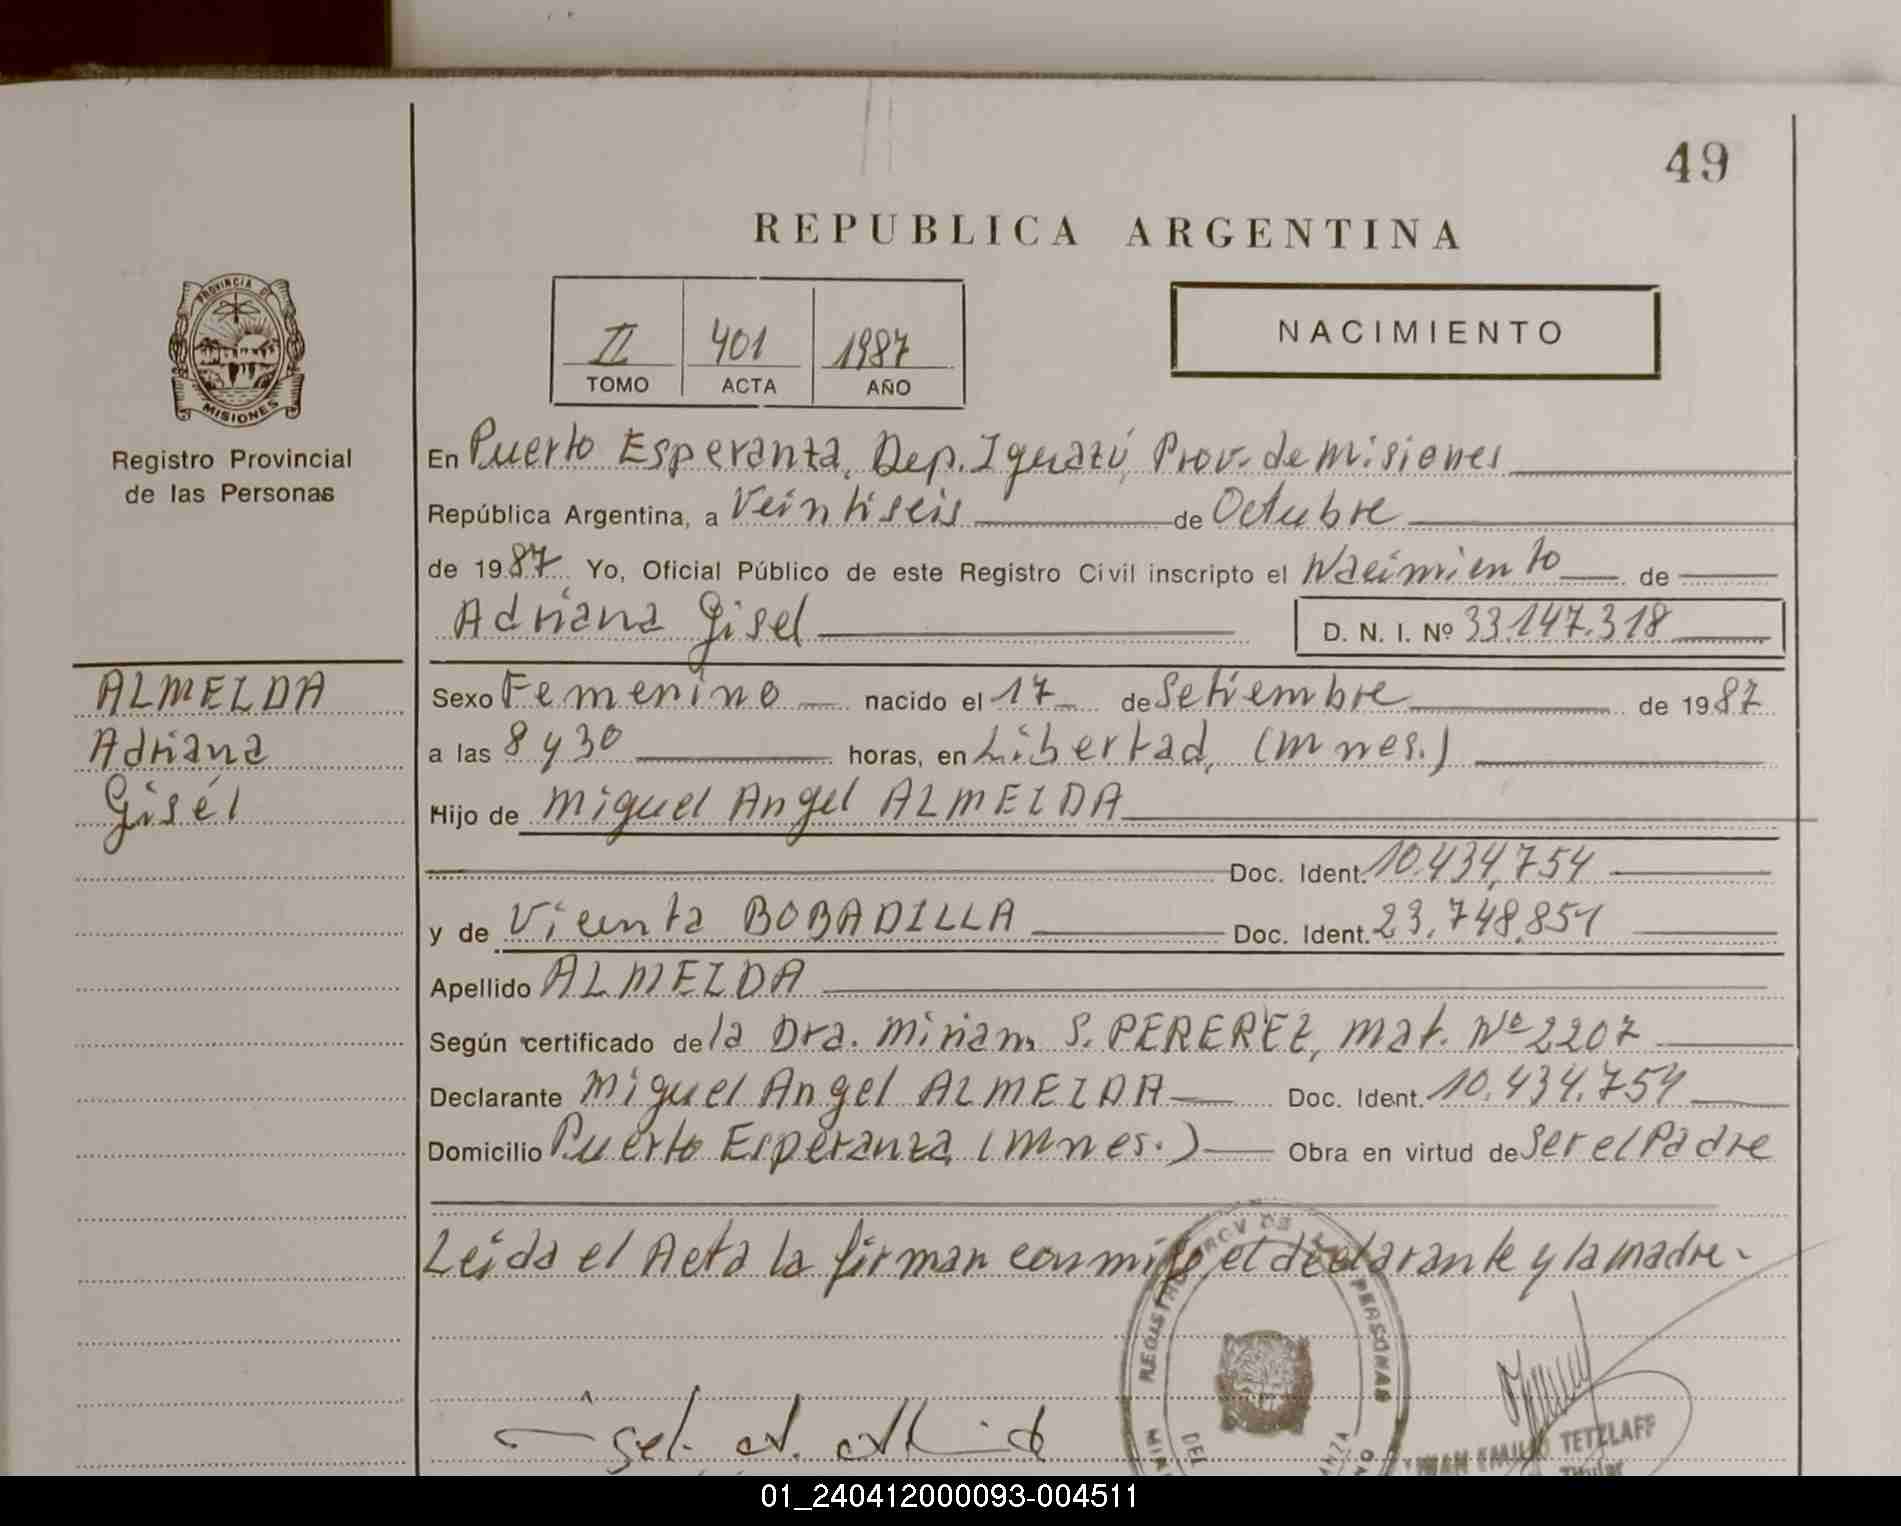 49
REPUBLICA ARGENTINA
II 401 1987
TOMO ACTA AÑO
NACIMIENTO
PROVINCIA DE
MISIONES
Registro Provincial
de las Personas
En Puerto Esperanza, Dep. Iguazú, Prov. de Misiones
República Argentina, a Veintiseis de Octubre
de 1987 Yo, Oficial Público de este Registro Civil inscripto el Nacimiento de
Adriana Gisel D. N. I. Nº 33.147.318
ALMEIDA
Adriana
Gisél
Sexo Femenino nacido el 17 de Setiembre de 1987
a las 8 y 30 horas, en Libertad, (Mnes.)
Hijo de Miguel Angel ALMEIDA
Doc. Ident. 10.434.754
y de Vicenta BOBADILLA Doc. Ident. 23.748.851
Apellido ALMEIDA
Según certificado de la Dra. Miriam S. PEREREZ, Mat. Nº 2207
Declarante Miguel Angel ALMEIDA Doc. Ident. 10.434.754
Domicilio Puerto Esperanza (Mnes.) Obra en virtud de ser el Padre
Leída el Acta la firman conmigo el declarante y la madre.
REGISTRO PROV DE PERSONAS
DEL
EMILIO TETZLAFF
Titular
01_240412000093-004511